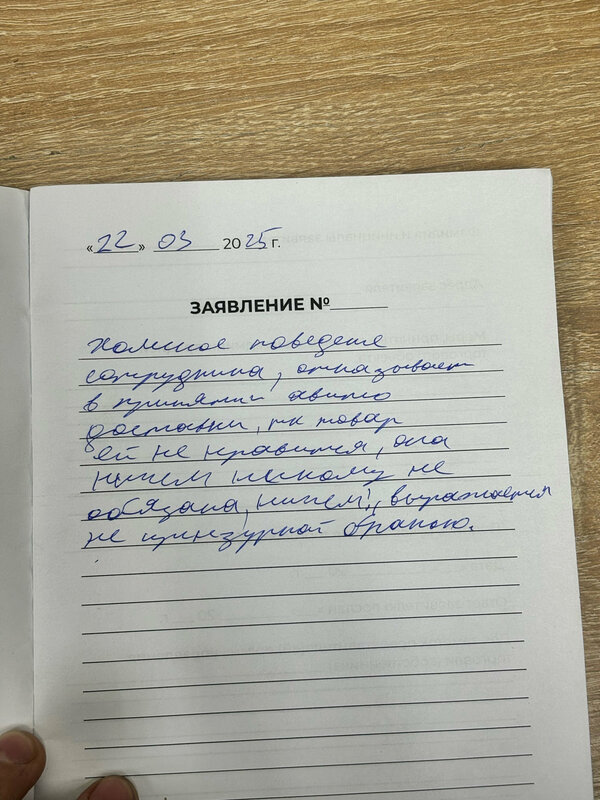 «22» 03 2025 г.
ЗАЯВЛЕНИЕ №
Хамское поведение
сотрудника, отказывает
в принятии авито
доставки, тк товар
ей не нравится, она
ничем никому не
обязана, ничем, выражается
не цензурной бранью.